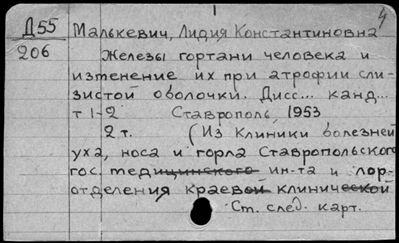 4
Д55 Малькевич, Лидия Константиновна
206 Железы гортани человека и
изменение их при атрофии сли-
зистой оболочки. Дисс... канд...
т 1-2 Ставрополь, 1953
2 т. (Из Клиники болезней
уха, носа и горла Ставропольского
гос. медицинского ин-та и лор-
отделения краевой клинической
Ст. след. карт.